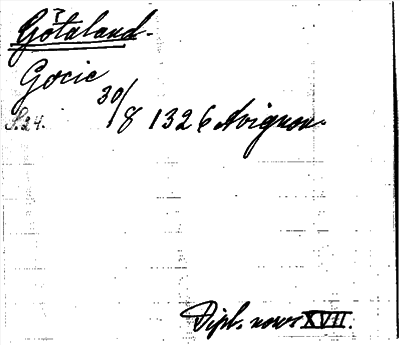 Götaland.
Gocie
S. 24. 30/8 1326 Avignon.
Dipl. norv. XVII.